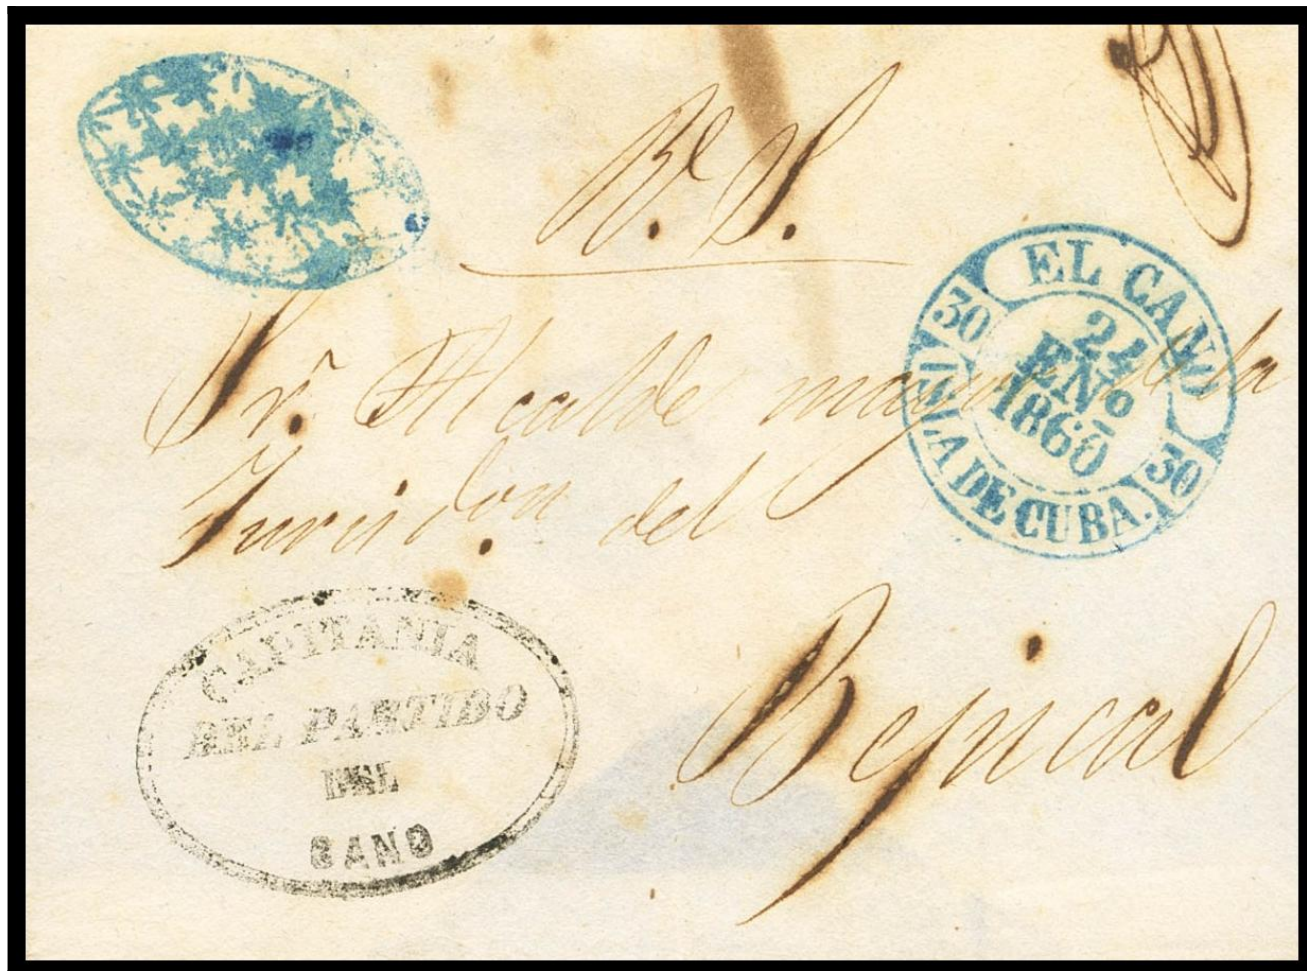 Rl. S.
EL CANO
30
21
ENº
1860
30
ISLA DE CUBA.
Sr. Alcalde mayor de la
Jurisdon. del
CAPITANIA
DEL PARTIDO
DEL
CANO
Bejucal